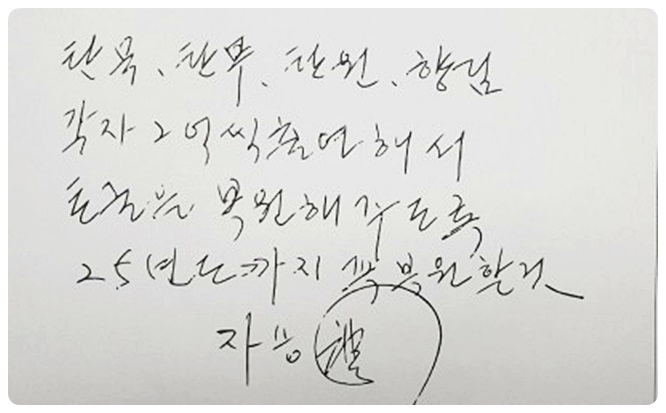 탄묵、탄무、탄원、향림
각자 2억씩 출연해서
토굴을 복원해주도록
25년도까지 꼭 복원할 것
자승